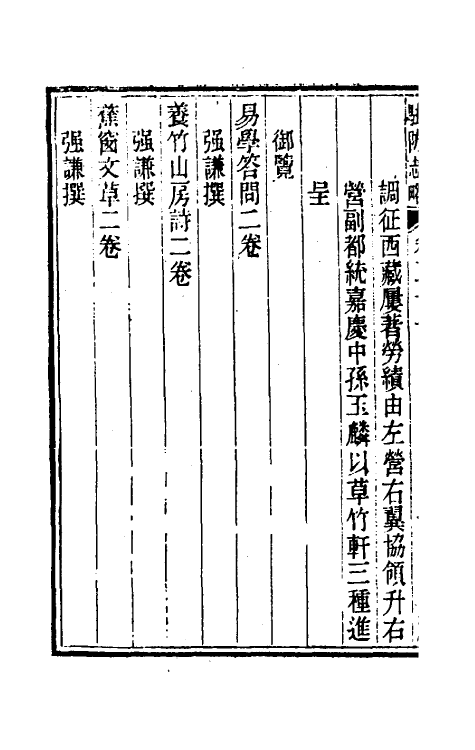 駐防志略
調征西藏屢著勞績由左營右翼協領升右
營副都統嘉慶中孫玉麟以草竹軒三種進
呈
御覽
易學答問二卷
强謙撰
養竹山房詩二卷
强謙撰
蕉窗文草二卷
强謙撰